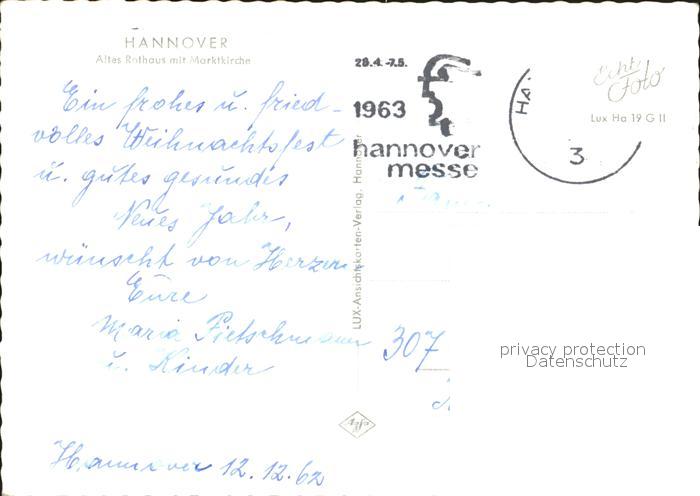 HANNOVER
Altes Rathaus mit Marktkirche
Ein frohes u. fried-
volles Weihnachtsfest
u. gutes gesundes
Neues Jahr,
wünscht von Herzen
Eure
Maria Pietschmann
u. Kinder
Hannover 12.12.62
LUX-Ansichtskarten-Verlag, Hannover
Agfa
28.4.-7.5.
1963
hannover
messe
Ha.
3
Echt
Foto
Lux Ha 19 G II
307
privacy protection
Datenschutz